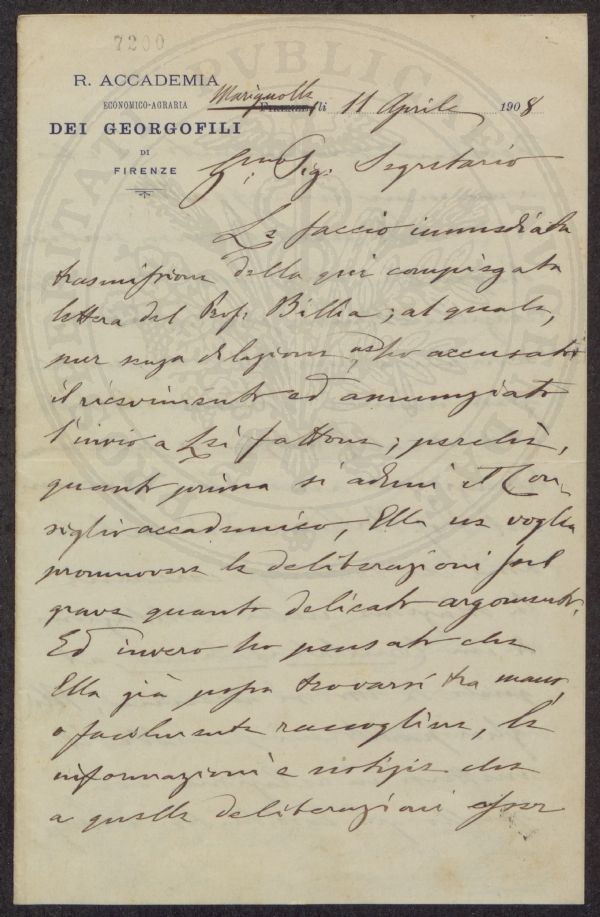 7200
R. ACCADEMIA
ECONOMICO-AGRARIA
DEI GEORGOFILI
DI
FIRENZE
Marignolle FIRENZE, li 11 Aprile 1908
Sig: Segretario
Le faccio immediata
trasmissione della qui compiegata
lettera del Prof: Billia; al quale,
pur senza dilazione, ho accusato
il ricevimento ed annunziato
l'invio a Lei fattone; perchè,
quanto prima si aduni il Con-
siglio accademico, Ella ne voglia
promuovere le deliberazioni sul
grave quanto delicato argomento.
Ed invero ho pensato che
Ella già possa trovarsi tra mano,
o facilmente raccogliere, le
informazioni e notizie che
a quelle deliberazioni esser